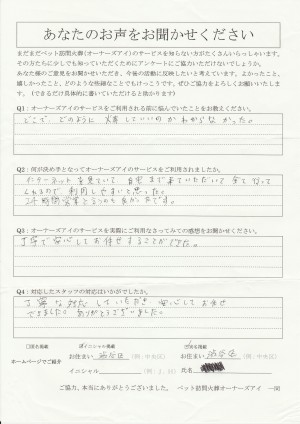 あなたのお声をお聞かせください
まだまだペット訪問火葬(オーナーズアイ)のサービスを知らない方がたくさんいらっしゃいます。
その方たちに少しでも知っていただくためにアンケートにご協力いただけないでしょうか。
あなた様のご意見をお聞かせいただき、今後の活動に反映したいと考えています。よかったこと、
嬉しかったこと、どのような些細なことでもけっこうです。ぜひご協力をよろしくお願いいたします。
(できるだけ具体的に書いていただけると助かります)
Q1:オーナーズアイのサービスをご利用される前に悩んでいたことをお教えください。
どこで、どのように火葬していいのかわからなかった。
Q2:何が決め手となってオーナーズアイのサービスをご利用されましたか。
インターネットを見ていて、自宅まで来ていただいて全て行って
くれるので、利用しやすいと思った。
24時間営業というのも良かったです。
Q3:オーナーズアイのサービスを実際にご利用なさってみての感想をお聞かせください。
丁寧で安心してお任せすることができた。
Q4:対応したスタッフの対応はいかがでしたか。
丁寧な対応していただき安心してお任せ
できました。ありがとうございました。
□匿名掲載 イニシャル掲載 実名掲載
ホームページでご紹介 お住まい 渋谷区 (例:中央区) お住まい 渋谷区 (例:中央区)
イニシャル (例:J.O) 氏名
ご協力、本当にありがとうございました。 ペット訪問火葬オーナーズアイ 一同